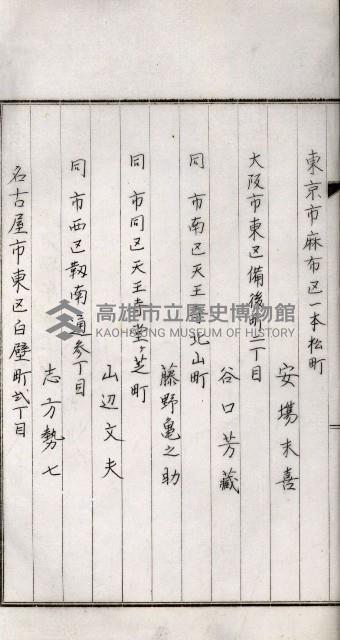 東京市麻布区一本松町
安場末喜
大阪市東区備後町二丁目
谷口芳藏
同市南区天王寺北山町
藤野亀之助
同市同区天王寺堂ヶ芝町
山辺文夫
同市西区靱南通参丁目
志方勢七
名古屋市東区白壁町弍丁目
高雄市立歷史博物館
KAOHSIUNG MUSEUM OF HISTORY